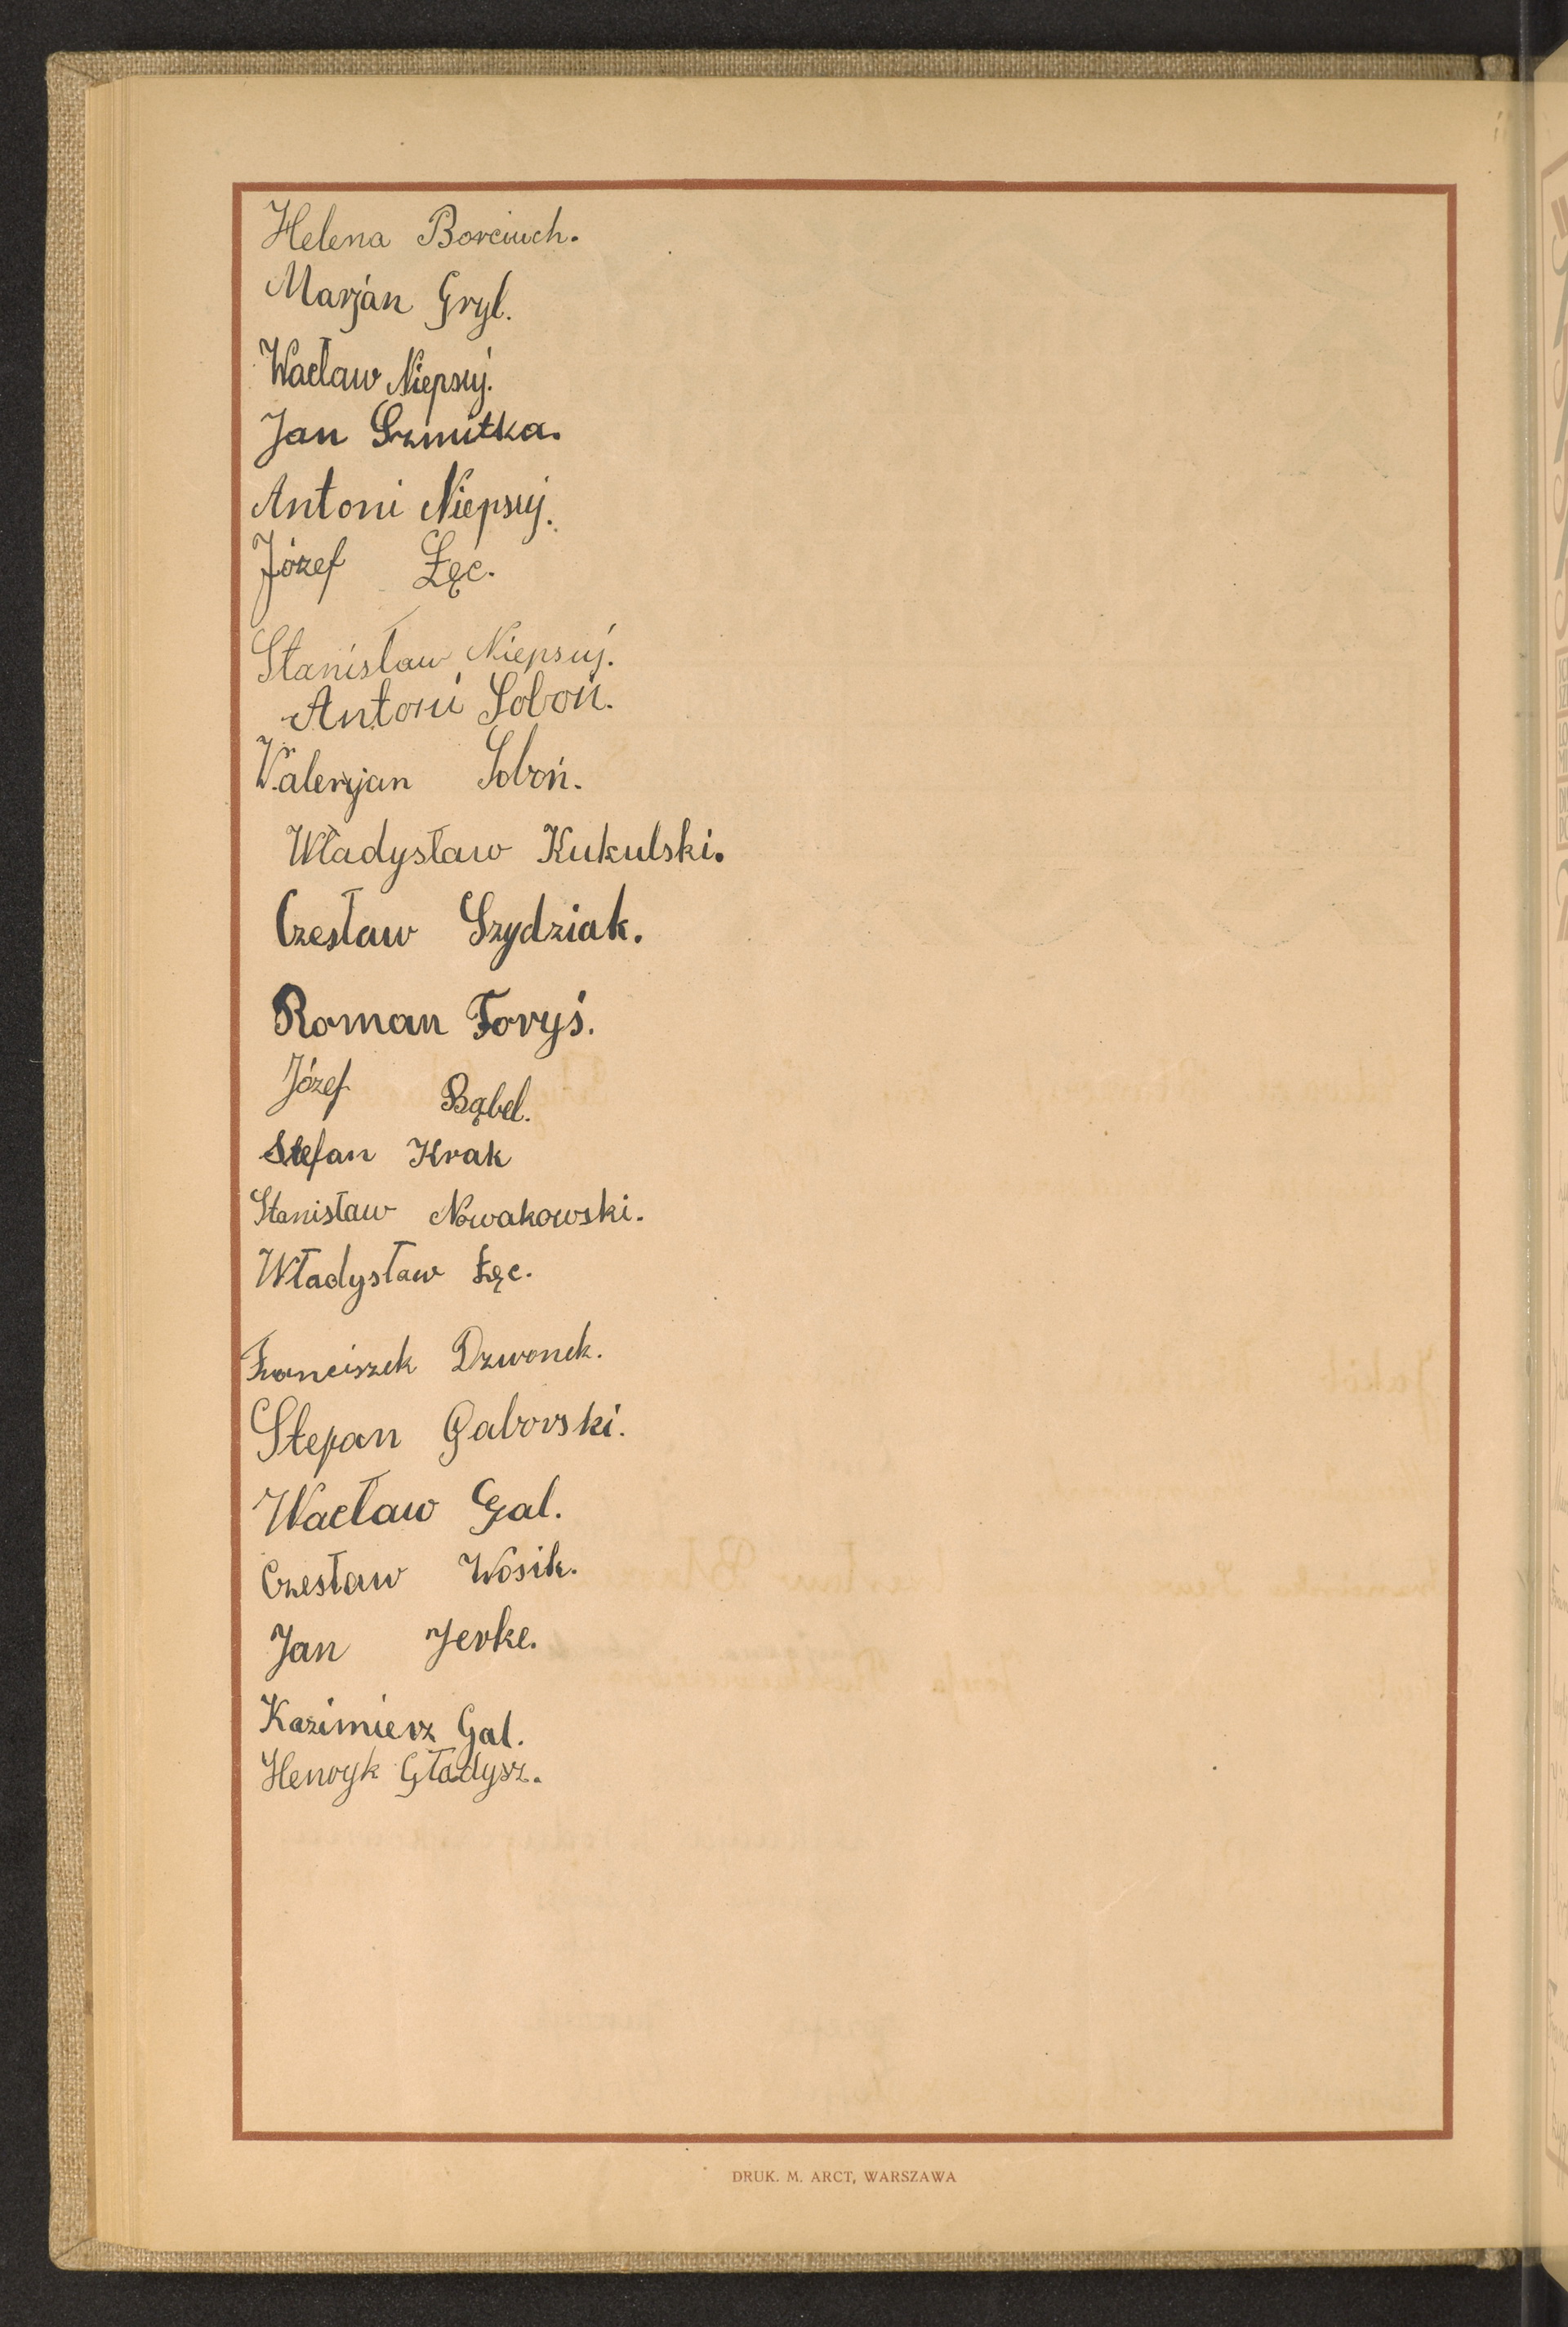 Helena Borciuch.
Marján Gryl.
Wacław Niepsuj.
Jan Szmitka.
Antoni Niepsuj.
Józef Łęc.
Stanisław Niepsuj.
Antoni Soboń.
Walerjan Soboń.
Władysław Kukulski.
Czesław Szydziak.
Roman Foryś.
Józef Bąbel.
Stefan Krak
Stanisław Nowakowski.
Władysław Łęc.
Franciszek Dzwonek.
Stefan Gaborski.
Wacław Gal.
Czesław Wósik.
Jan Jerke.
Kazimierz Gal.
Henryk Gładysz.
DRUK. M. ARCT, WARSZAWA